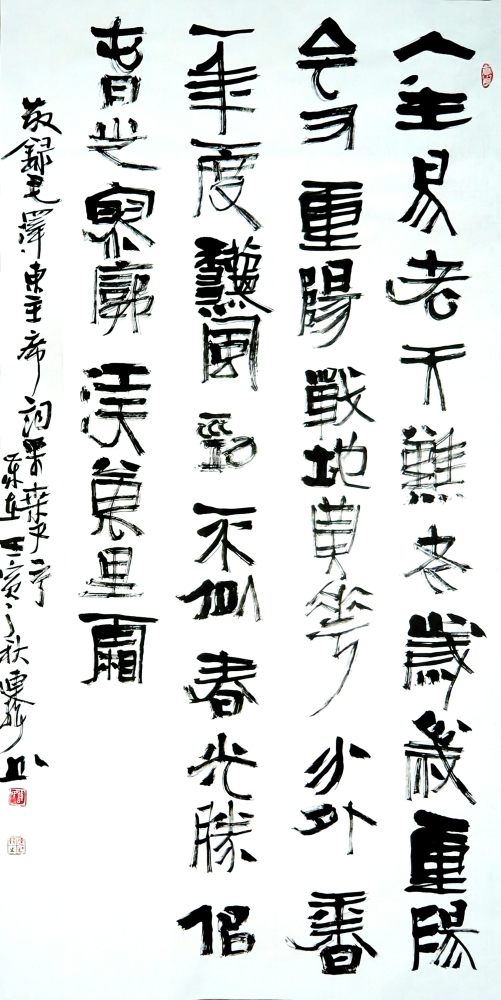 人生易老天難老歲歲重陽
今又重陽戰地黄花分外香
一年一度龝風勁不似春光勝佀
旾光寥廓江天萬里霜
敬録毛澤東主席詞采桑子
歲在壬寅之秋